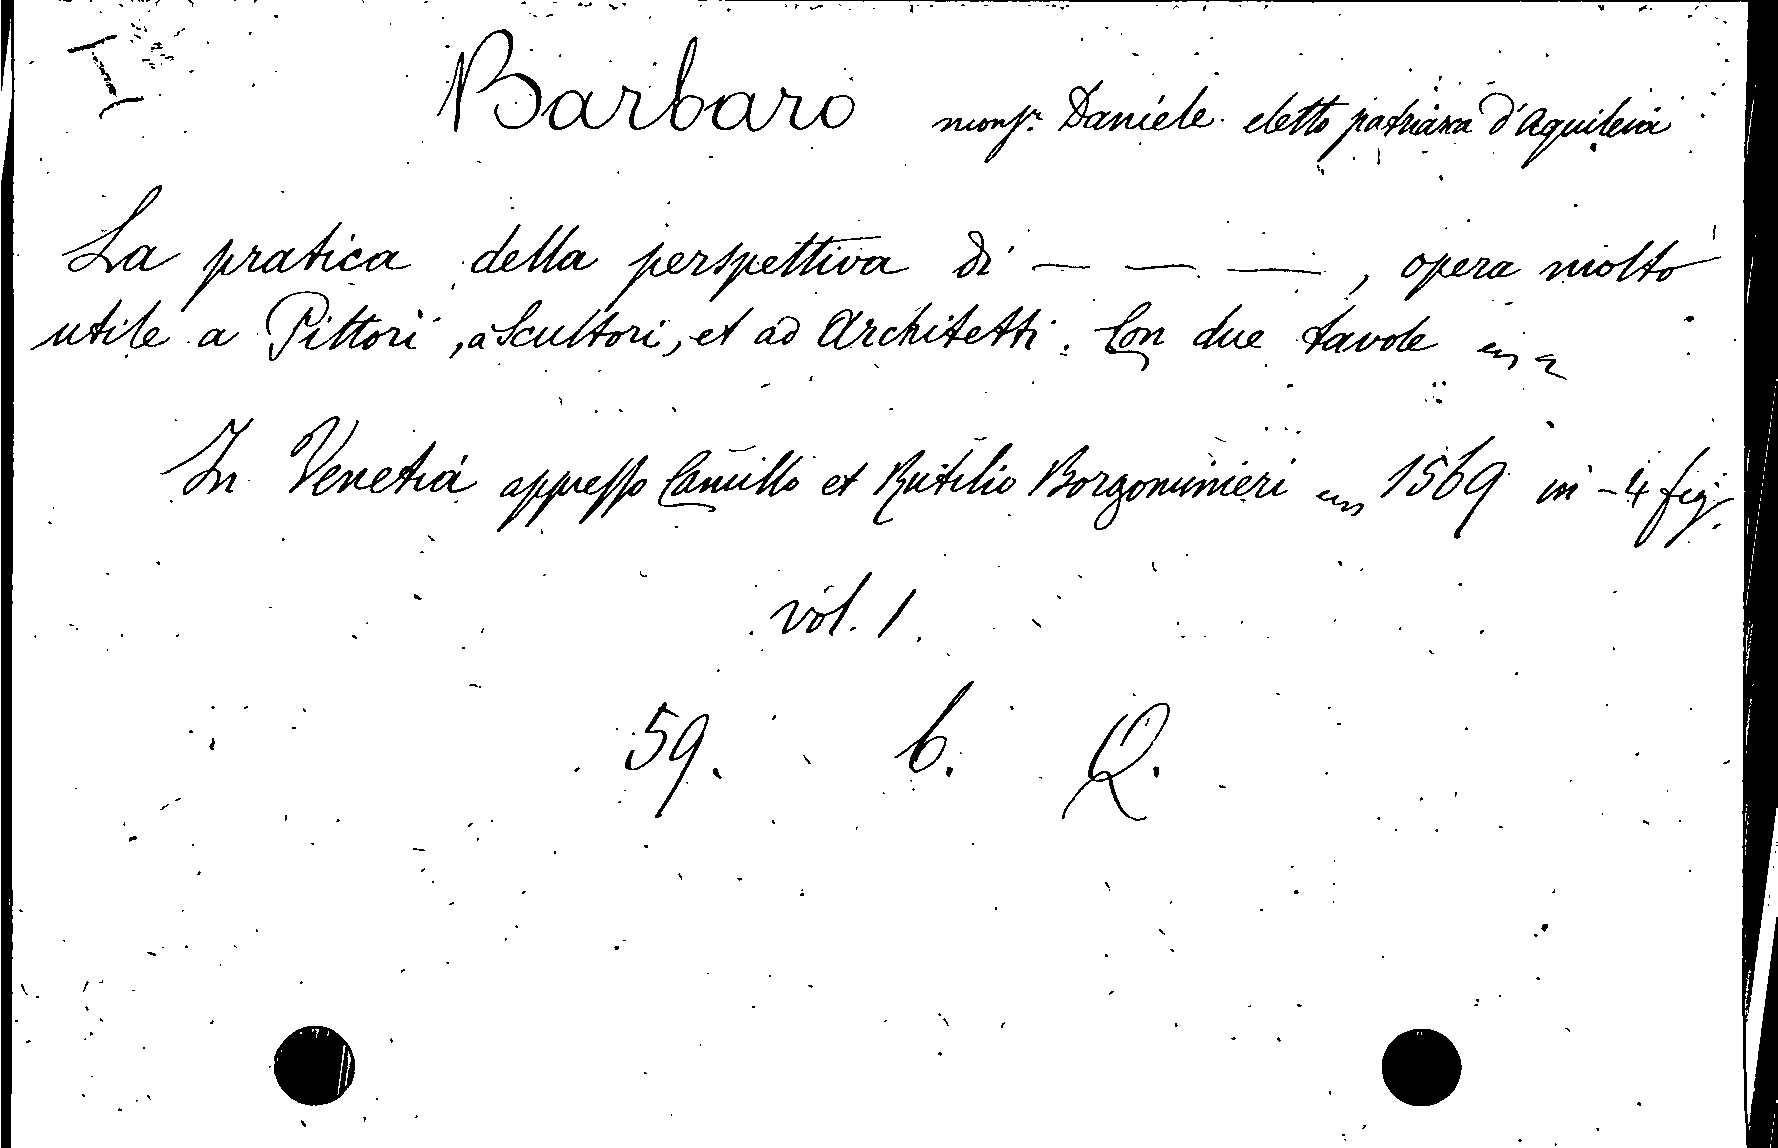 I
Barbaro monsr. Daniele eletto patriarca d'Aquileia
La pratica della perspettiva di — — —, opera molto
utile a Pittori, a Scultori, et ad Architetti. Con due tavole
In Venetia appresso Camillo et Rutilio Borgominieri 1569 in-4 fig.
vol. 1.
59. 6. Q.